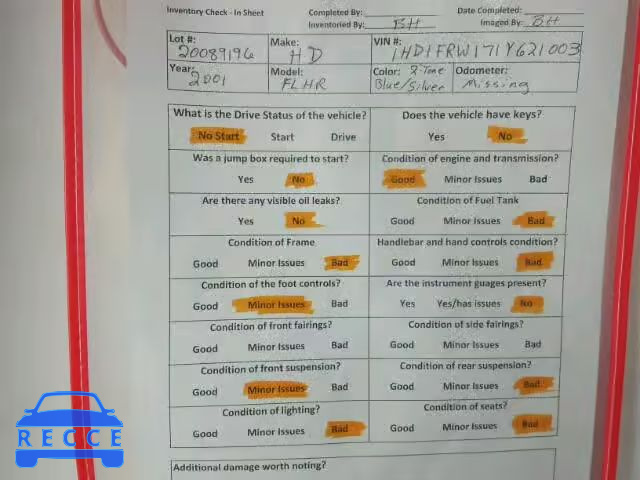 Inventory Check - In Sheet Completed By: Date Completed:
Inventoried By: BH Imaged By: BH
Lot #: 20089196 Make: HD VIN #: 1HD1FRW171Y621003
Year: 2001 Model: FLHR Color: 2 Tone Blue/Silver Odometer: Missing
What is the Drive Status of the vehicle? Does the vehicle have keys?
No Start Start Drive Yes No
Was a jump box required to start? Condition of engine and transmission?
Yes No Good Minor Issues Bad
Are there any visible oil leaks? Condition of Fuel Tank
Yes No Good Minor Issues Bad
Condition of Frame Handlebar and hand controls condition?
Good Minor Issues Bad Good Minor Issues Bad
Condition of the foot controls? Are the instrument guages present?
Good Minor Issues Bad Yes Yes/has issues No
Condition of front fairings? Condition of side fairings?
Good Minor Issues Bad Good Minor Issues Bad
Condition of front suspension? Condition of rear suspension?
Good Minor Issues Bad Good Minor Issues Bad
Condition of lighting? Condition of seats?
Good Minor Issues Bad Good Minor Issues Bad
Additional damage worth noting?
RECCE